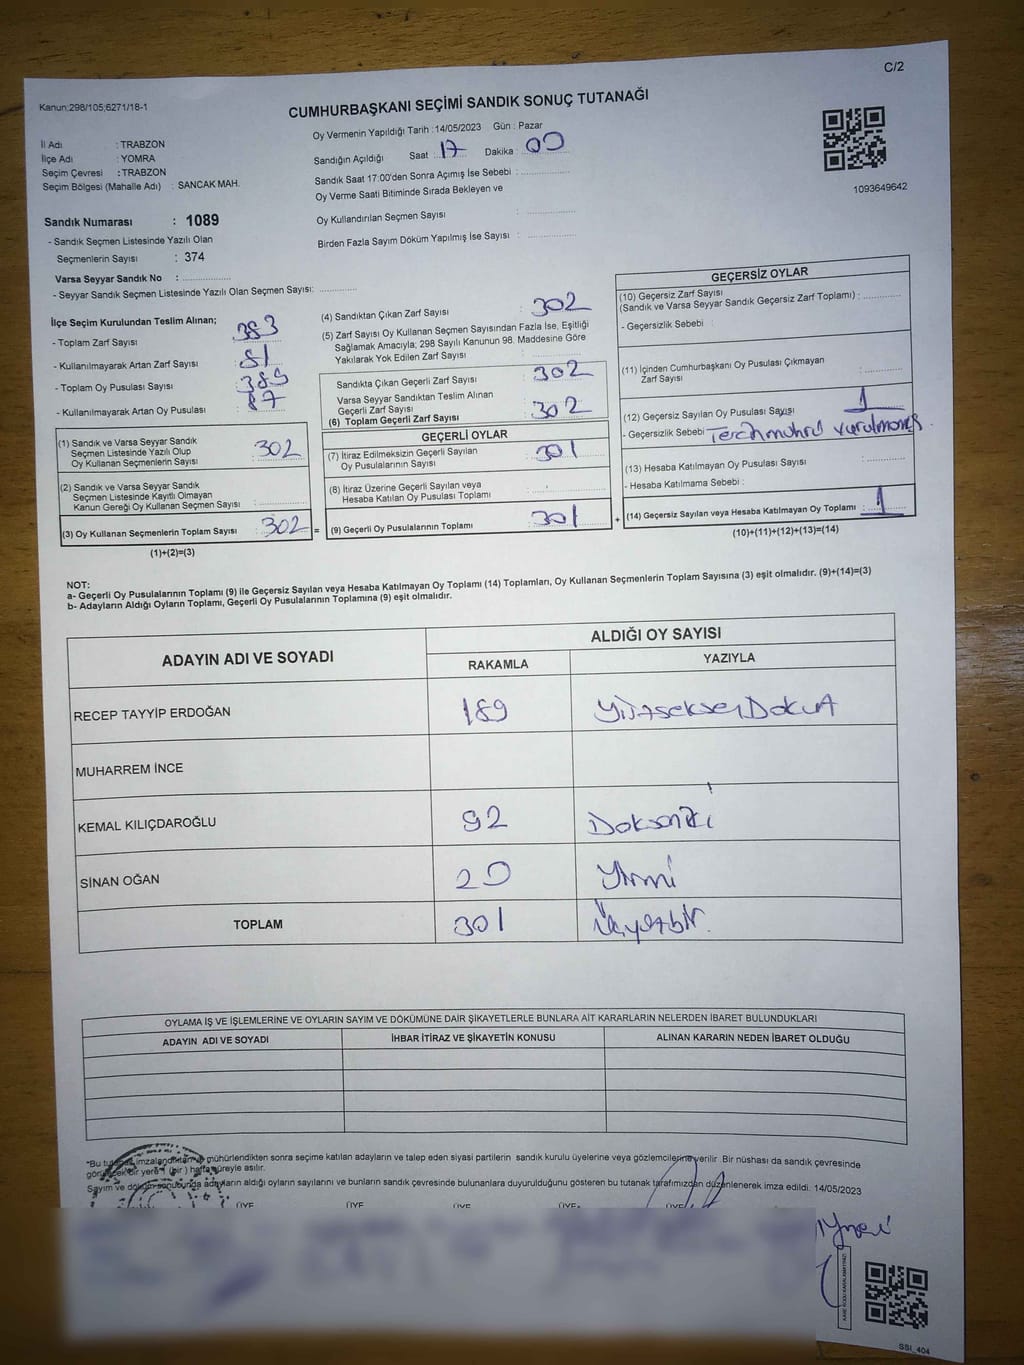 C/2
Kanun:298/105;6271/18-1
CUMHURBAŞKANI SEÇİMİ SANDIK SONUÇ TUTANAĞI
İl Adı : TRABZON
İlçe Adı : YOMRA
Seçim Çevresi : TRABZON
Seçim Bölgesi (Mahalle Adı) : SANCAK MAH.
Oy Vermenin Yapıldığı Tarih :14/05/2023 Gün : Pazar
Sandığın Açıldığı Saat : 17 Dakika : 00
Sandık Saat 17:00'den Sonra Açımış İse Sebebi :
Oy Verme Saati Bitiminde Sırada Bekleyen ve
Oy Kullandırılan Seçmen Sayısı :
Birden Fazla Sayım Döküm Yapılmış İse Sayısı :
1093649642
Sandık Numarası : 1089
- Sandık Seçmen Listesinde Yazılı Olan
Seçmenlerin Sayısı : 374
Varsa Seyyar Sandık No :
- Seyyar Sandık Seçmen Listesinde Yazılı Olan Seçmen Sayısı:
İlçe Seçim Kurulundan Teslim Alınan;
- Toplam Zarf Sayısı : 383
- Kullanılmayarak Artan Zarf Sayısı : 81
- Toplam Oy Pusulası Sayısı : 389
- Kullanılmayarak Artan Oy Pusulası : 87
(1) Sandık ve Varsa Seyyar Sandık
Seçmen Listesinde Yazılı Olup
Oy Kullanan Seçmenlerin Sayısı : 302
(2) Sandık ve Varsa Seyyar Sandık
Seçmen Listesinde Kayıtlı Olmayan
Kanun Gereği Oy Kullanan Seçmen Sayısı :
(3) Oy Kullanan Seçmenlerin Toplam Sayısı : 302 =
(1)+(2)=(3)
(4) Sandıktan Çıkan Zarf Sayısı : 302
(5) Zarf Sayısı Oy Kullanan Seçmen Sayısından Fazla İse, Eşitliği
Sağlamak Amacıyla; 298 Sayılı Kanunun 98. Maddesine Göre
Yakılarak Yok Edilen Zarf Sayısı :
Sandıkta Çıkan Geçerli Zarf Sayısı : 302
Varsa Seyyar Sandıktan Teslim Alınan
Geçerli Zarf Sayısı :
(6) Toplam Geçerli Zarf Sayısı : 302
GEÇERLİ OYLAR
(7) İtiraz Edilmeksizin Geçerli Sayılan
Oy Pusulalarının Sayısı : 301
(8) İtiraz Üzerine Geçerli Sayılan veya
Hesaba Katılan Oy Pusulası Toplamı :
(9) Geçerli Oy Pusulalarının Toplamı : 301 +
GEÇERSİZ OYLAR
(10) Geçersiz Zarf Sayısı
(Sandık ve Varsa Seyyar Sandık Geçersiz Zarf Toplamı) :
- Geçersizlik Sebebi :
(11) İçinden Cumhurbaşkanı Oy Pusulası Çıkmayan
Zarf Sayısı :
(12) Geçersiz Sayılan Oy Pusulası Sayısı : 1
- Geçersizlik Sebebi :
(13) Hesaba Katılmayan Oy Pusulası Sayısı :
- Hesaba Katılmama Sebebi :
(14) Geçersiz Sayılan veya Hesaba Katılmayan Oy Toplamı : 1
(10)+(11)+(12)+(13)=(14)
NOT:
a- Geçerli Oy Pusulalarının Toplamı (9) ile Geçersiz Sayılan veya Hesaba Katılmayan Oy Toplamı (14) Toplamları, Oy Kullanan Seçmenlerin Toplam Sayısına (3) eşit olmalıdır. (9)+(14)=(3)
b- Adayların Aldığı Oyların Toplamı, Geçerli Oy Pusulalarının Toplamına (9) eşit olmalıdır.
ADAYIN ADI VE SOYADI
ALDIĞI OY SAYISI
RAKAMLA YAZIYLA
RECEP TAYYİP ERDOĞAN 189 YüzseksenDokuz
MUHARREM İNCE
KEMAL KILIÇDAROĞLU 92 Doksaniki
SİNAN OĞAN 20 Yirmi
TOPLAM 301 Üçyüzbir.
OYLAMA İŞ VE İŞLEMLERİNE VE OYLARIN SAYIM VE DÖKÜMÜNE DAİR ŞİKAYETLERLE BUNLARA AİT KARARLARIN NELERDEN İBARET BULUNDUKLARI
ADAYIN ADI VE SOYADI İHBAR İTİRAZ VE ŞİKAYETİN KONUSU ALINAN KARARIN NEDEN İBARET OLDUĞU
"Bu tutanak imzalandıktan ve mühürlendikten sonra seçime katılan adayların ve talep eden siyasi partilerin sandık kurulu üyelerine veya gözlemcilerine verilir .Bir nüshası da sandık çevresinde
görülecek bir yere 1 (bir ) hafta süreyle asılır.
Sayım ve döküm sonubunda adayların aldığı oyların sayılarını ve bunların sandık çevresinde bulunanlara duyurulduğunu gösteren bu tutanak tarafımızdan düzenlenerek imza edildi. 14/05/2023
ÜYE ÜYE ÜYE ÜYE ÜYE
SSI_404